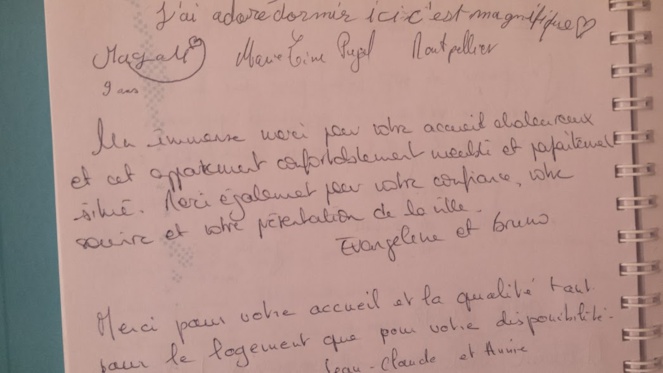 J'ai adoré dormir ici c'est magnifique ♡
Magali Marie Line Pujol Montpellier
9 ans
Un immense merci pour votre accueil chaleureux
et cet appartement confortablement meublé et parfaitement
situé. Merci également pour votre confiance, votre
sourire et votre présentation de la ville.
Evangeline et Bruno
Merci pour votre accueil et la qualité tant
pour le logement que pour votre disponibilité.
Jean-Claude et Annie